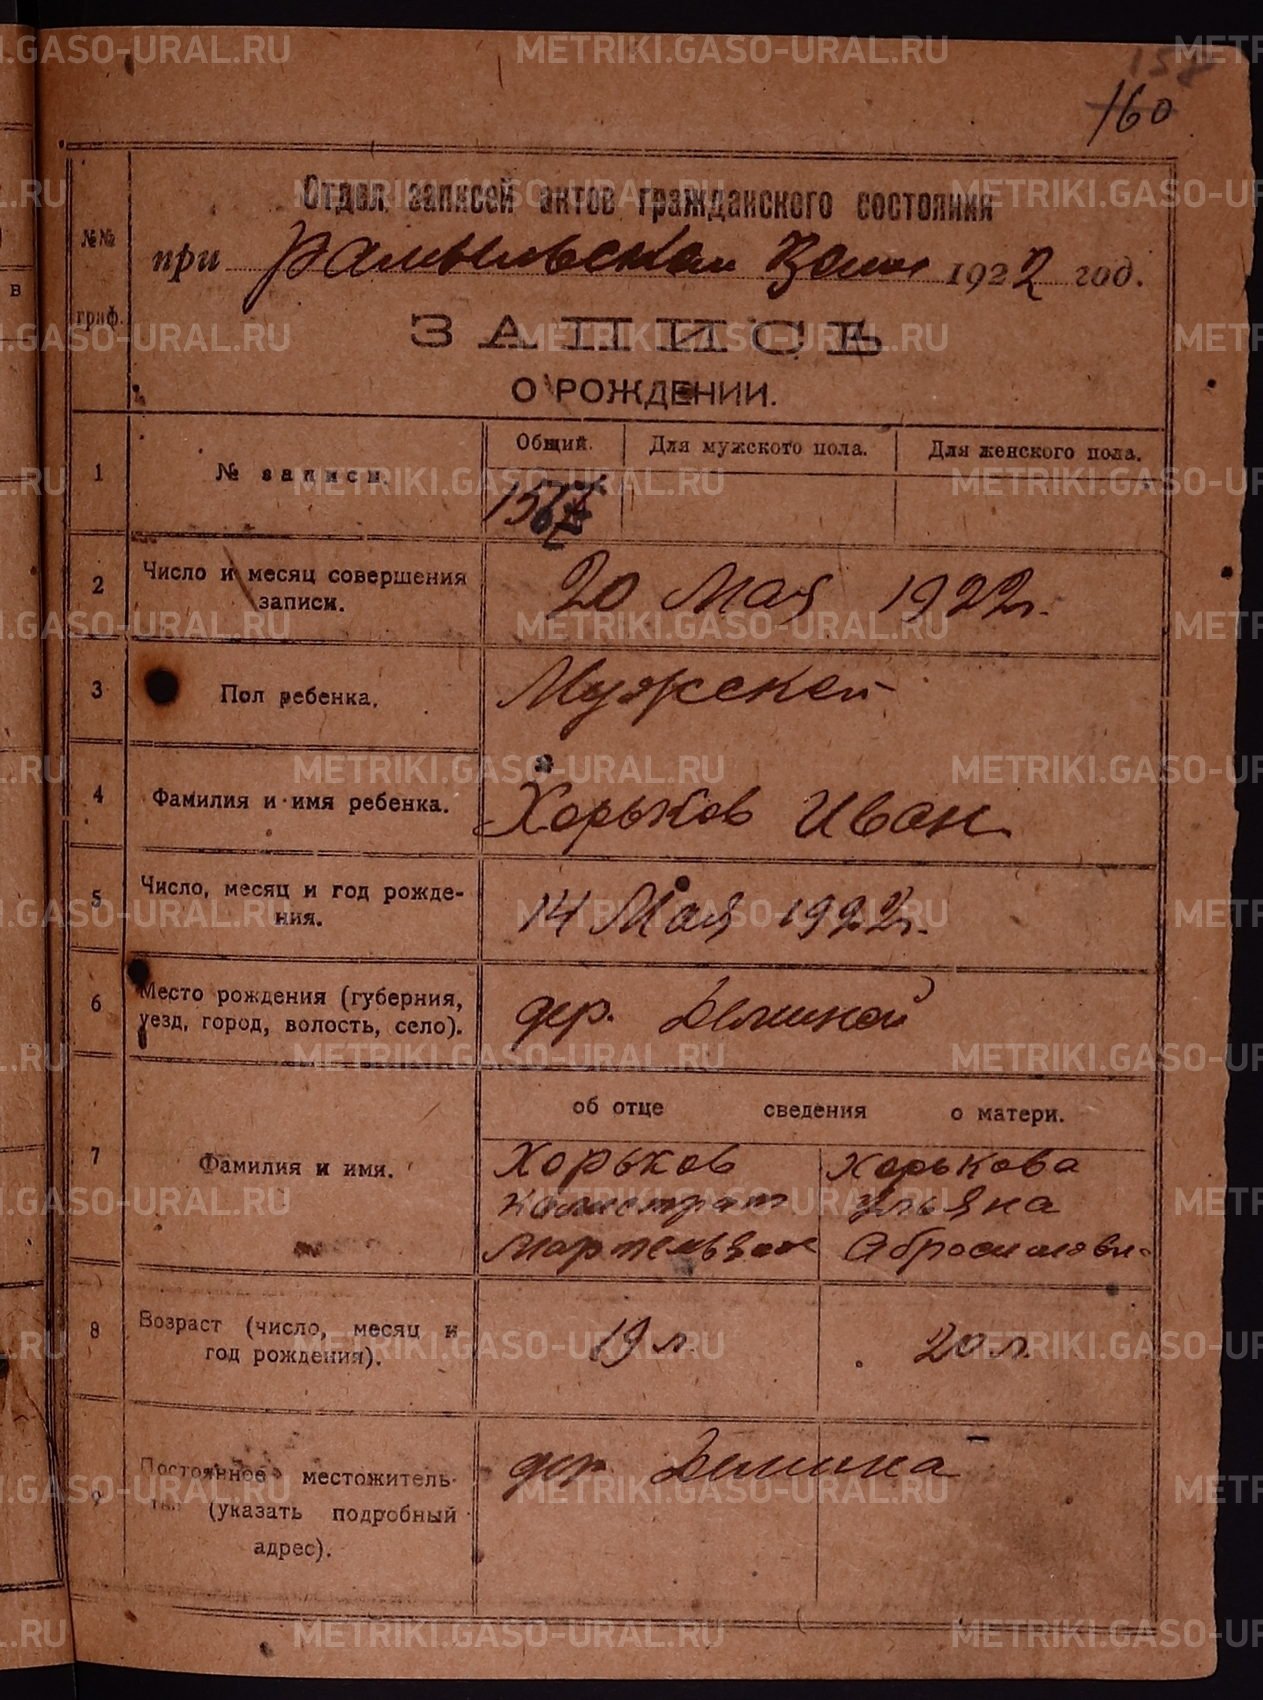 158
160
Отдел записей актов гражданского состояния
при Рамыльской Воли 1922 год.
№№ граф.
ЗАПИСЬ
О РОЖДЕНИИ.
1 № записи. Общий. Для мужского пола. Для женского пола.
2 Число и месяц совершения записи. 20 Мая 1922 г.
3 Пол ребенка. Мужской
4 Фамилия и имя ребенка. Хорьков Иван
5 Число, месяц и год рожде-
ния. 14 Мая 1922 г.
6 Место рождения (губерния,
уезд, город, волость, село). дер.
об отце сведения о матери.
7 Фамилия и имя. Хорьков Хорькова
Калистрат Ульяна
Абросимовн
8 Возраст (число, месяц и
год рождения). 19 л. 20 л.
9 Постоянное местожитель-
(указать подробный
адрес). дер
METRIKI.GASO-URAL.RU